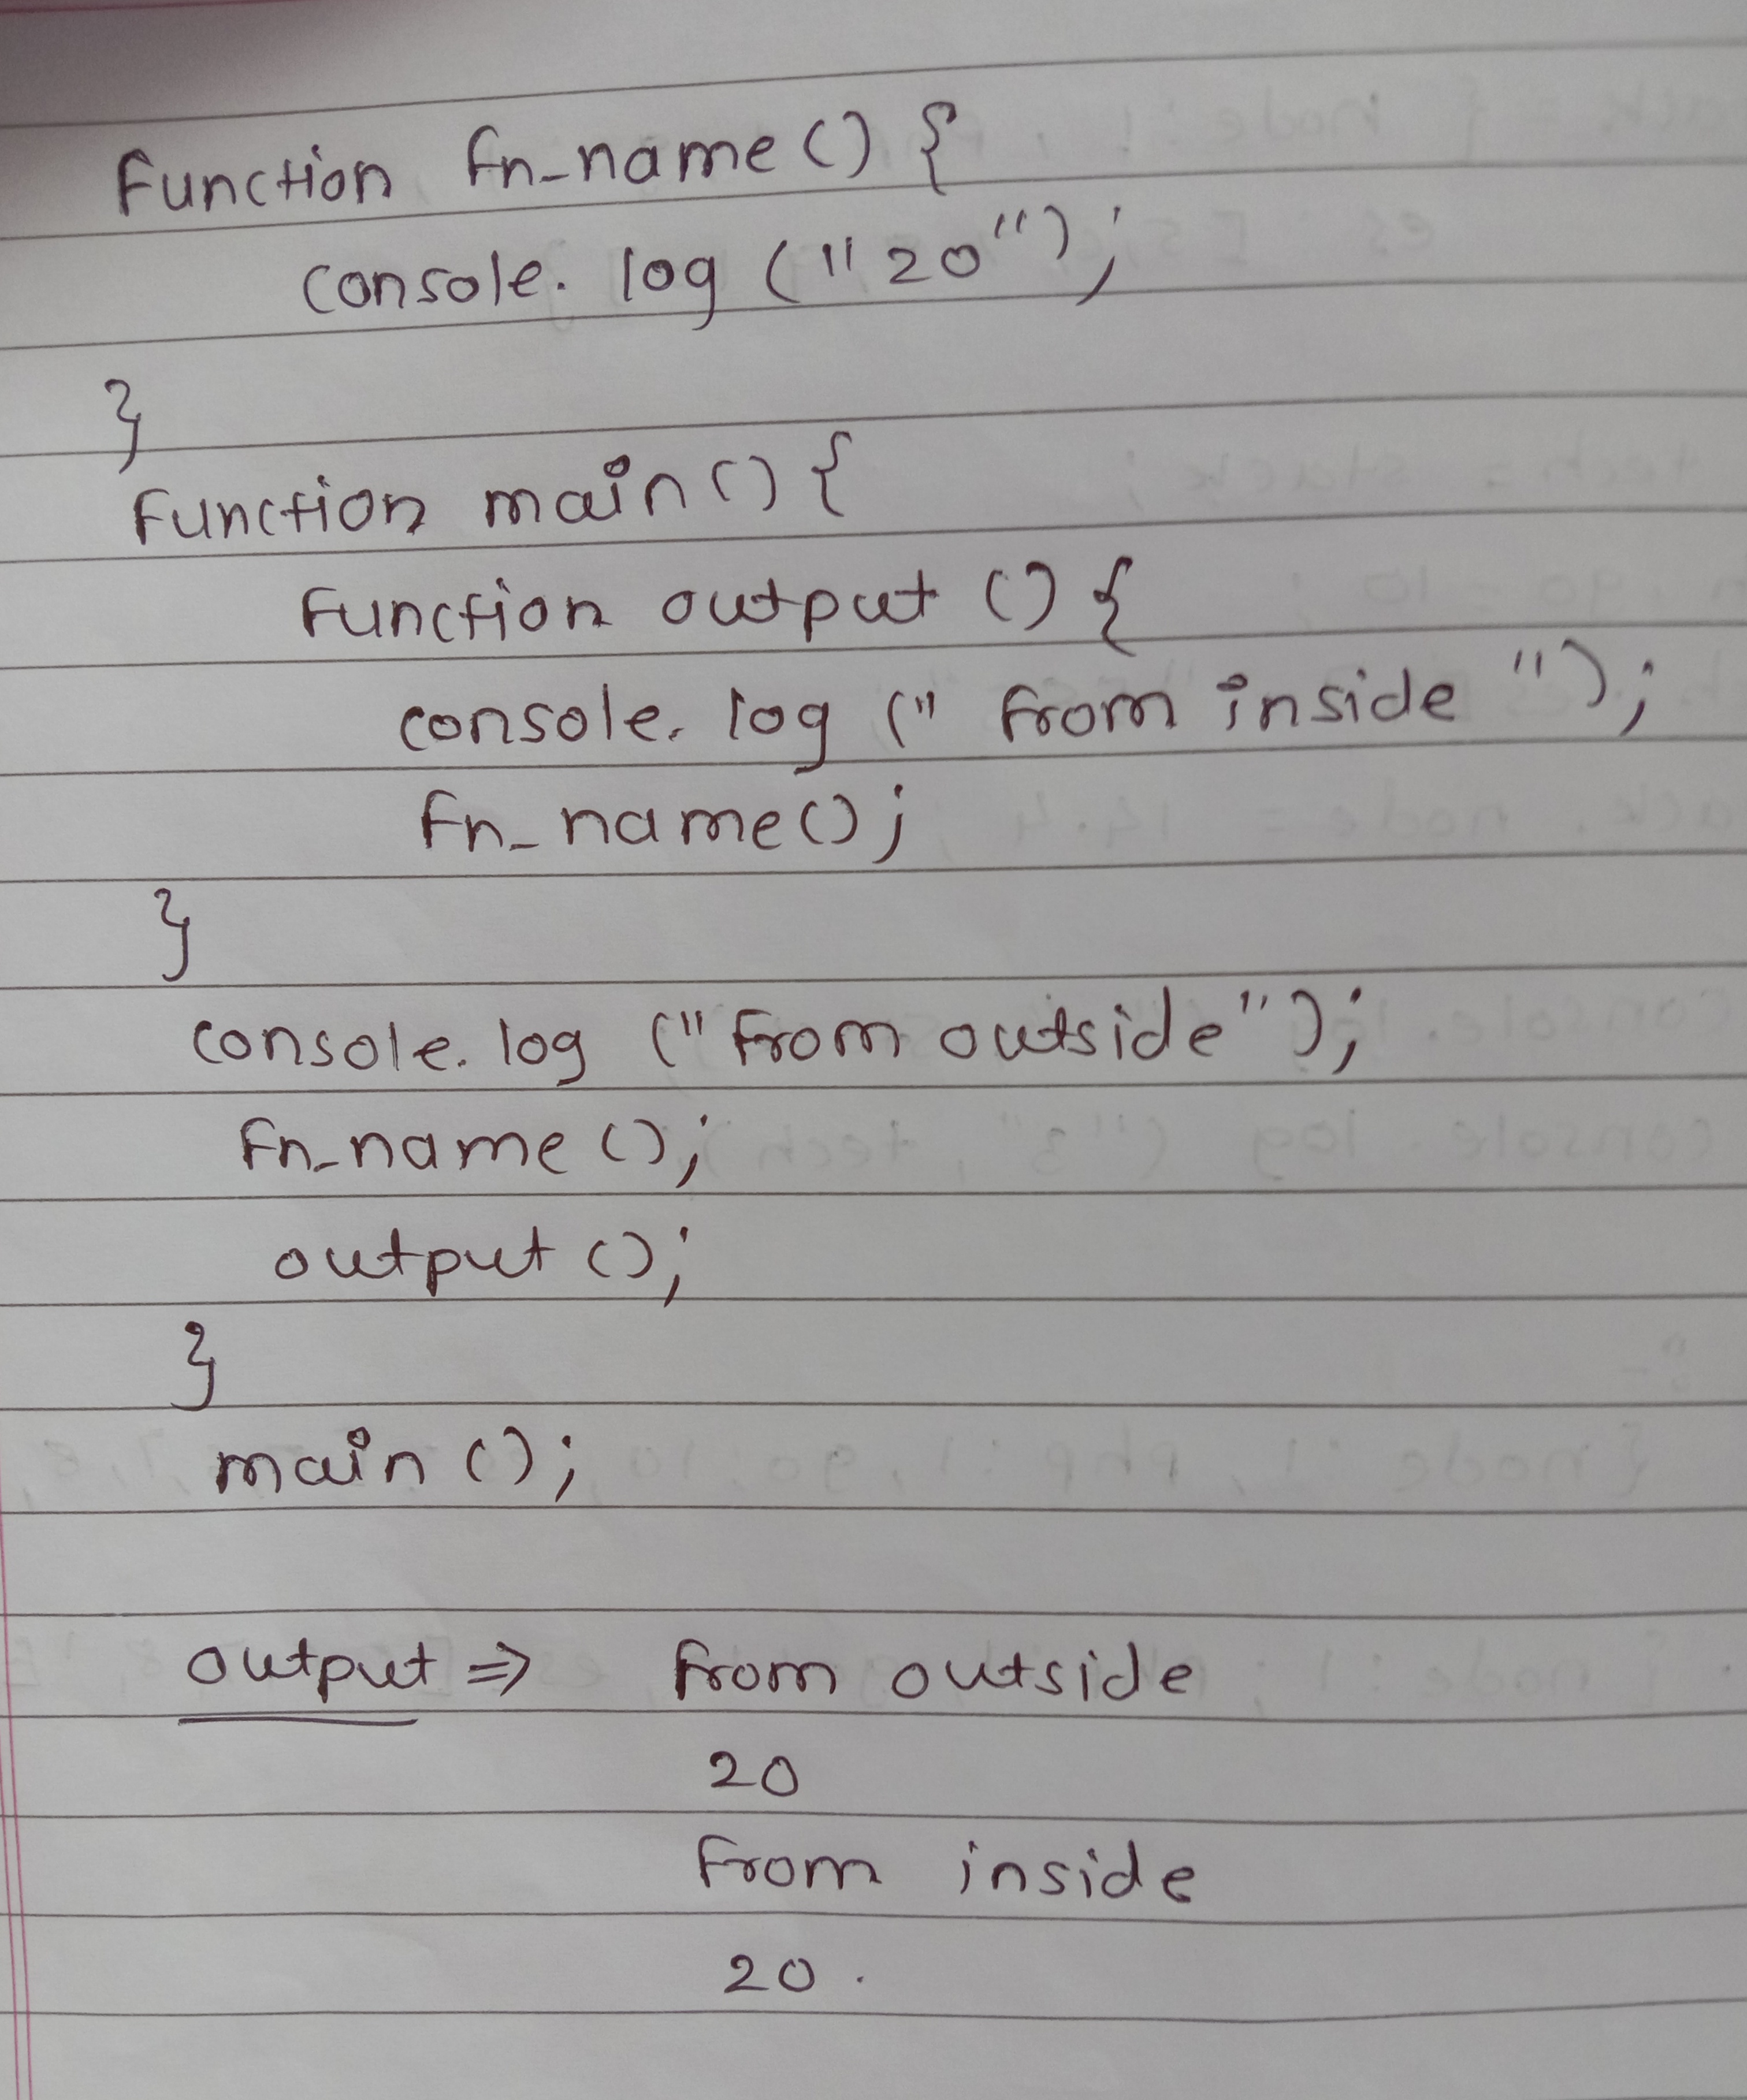 function fn_name () {
console. log ("20");
}
function main () {
function output () {
console. log (" from inside ");
fn_name ();
}
console. log ("from outside");
fn_name ();
output ();
}
main ();
output ⇒ from outside
20
from inside
20.